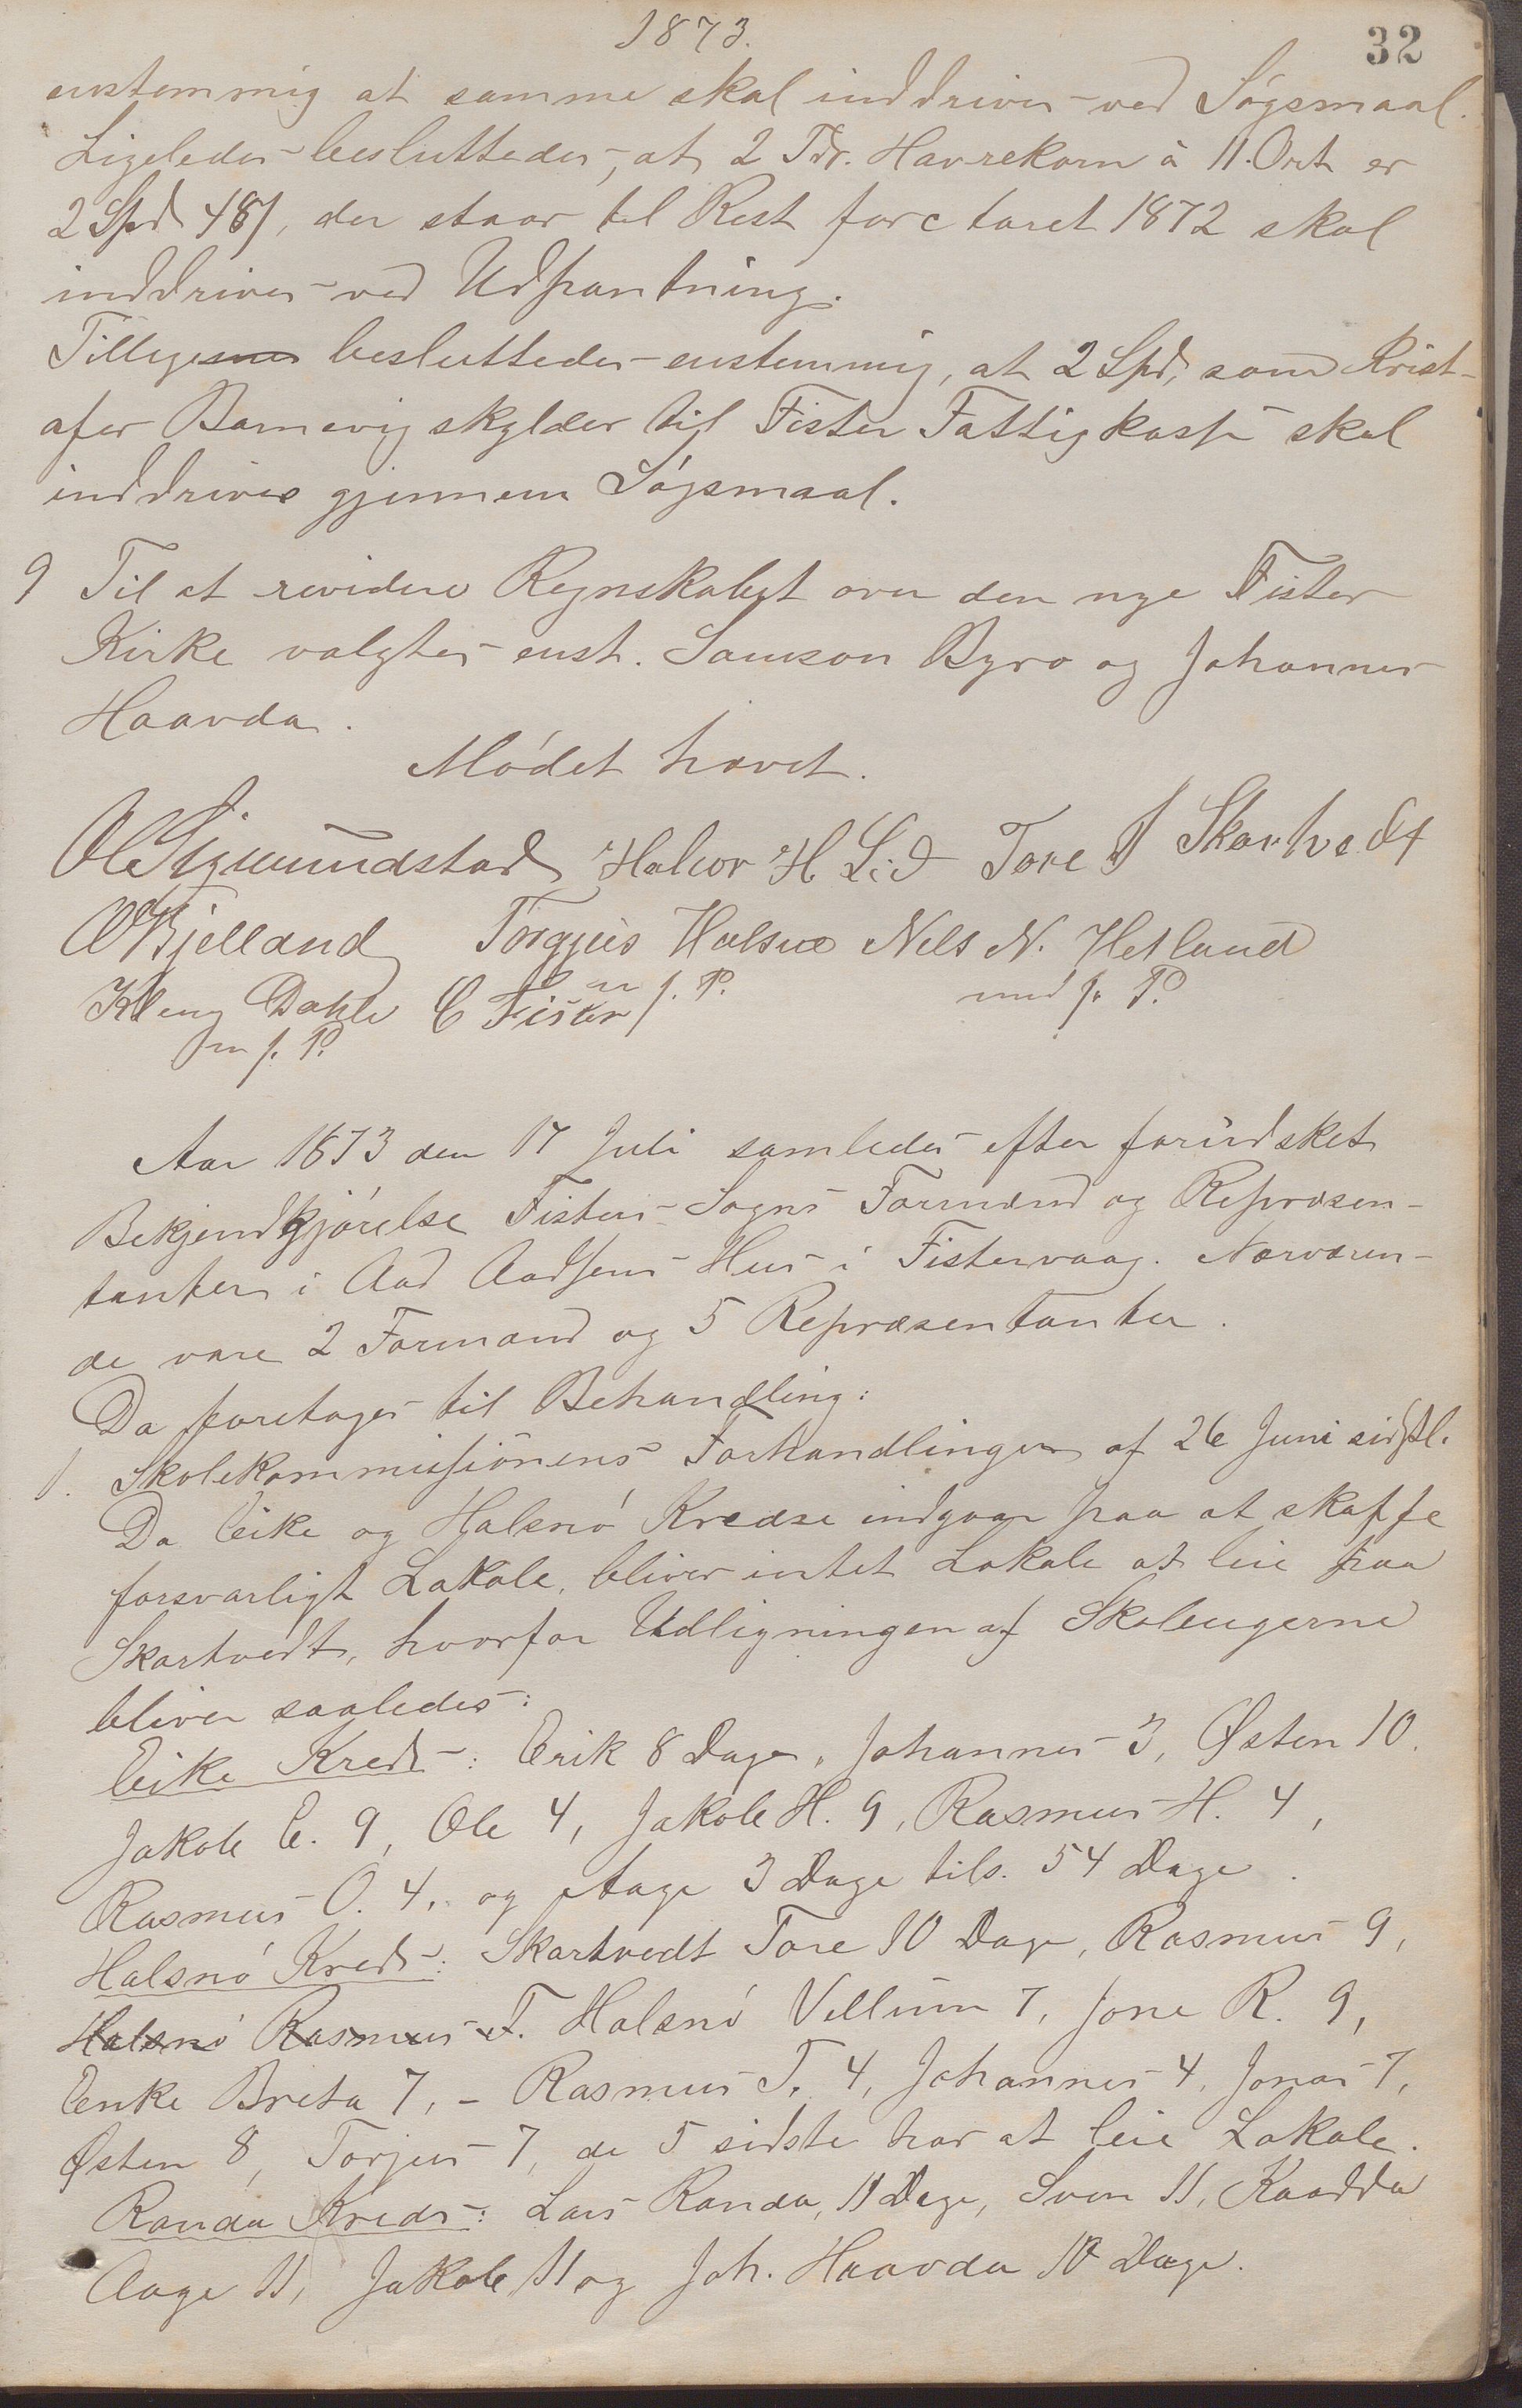 1873.
32
enstemmig at samme skal inddrives ved Søgsmaal.
Ligeledes besluttedes, at 2 Tdr. Havrekorn à 11. Ort er
2 Spd 48 s, der staar til Rest for Aaret 1872 skal
inddrives ved Udpantning.
Tilligemed besluttedes enstemmig, at 2 Spd, som Krist-
afer Barnevig skylder til Fister Fattigkasse skal
inddrives gjennem Søgsmaal.
9 Til at revidere Regnskabet over den nye Fister
Kirke valgtes enst. Samson Byro og Johannes
Haavda.
Mødet hævet.
O Sigmundstad Halvor H Lid Tore T Skartvedt
O Bjelland Torgjus Halsnø Nels N. Hetland
Kleng Dahle O Fister m f. P. med f. P.
m f. P.
Aar 1873 den 17 Juli samledes efter forudsket
Bekjendtgjørelse Fisters Sogns Formænd og Repræsen-
tanter i Aad Aadsens Hus i Fistervaag. Nærværen-
de vare 2 Formænd og 5 Repræsentanter.
Da foretoges til Behandling:
1. Skolekommissionens Forhandlinger af 26 Juni sidstl.
Da Eike og Halsnø Kredse indgaar paa at skaffe
forsvarligt Lokale, bliver intet Lokale at leie paa
Skartvedt, hvorfor Udligningen af Skoleugerne
bliver saaledes:
Eike Kreds: Erik 8 Dage, Johannes 3, Østen 10.
Jakob E. 9, Ole 4, Jakob H. 9, Rasmus H. 4,
Rasmus O. 4, og Aage 3 Dage tils. 54 Dage.
Halsnø Kreds: Skartvedt Tore 10 Dage, Rasmus 9,
Halsnø Rasmus T. Halsnø Vellum 7, Jone R. 9,
Enke Breta 7, - Rasmus T. 4, Johannes 4, Jonas 7,
Østen 8, Torjus 7, de 5 sidste har at leie Lokale.
Randa Kreds: Lars Randa, 11 Dage, Sven 11, Kaadda
Aage 11, Jakob 11 og Joh. Haavda 10 Dage.